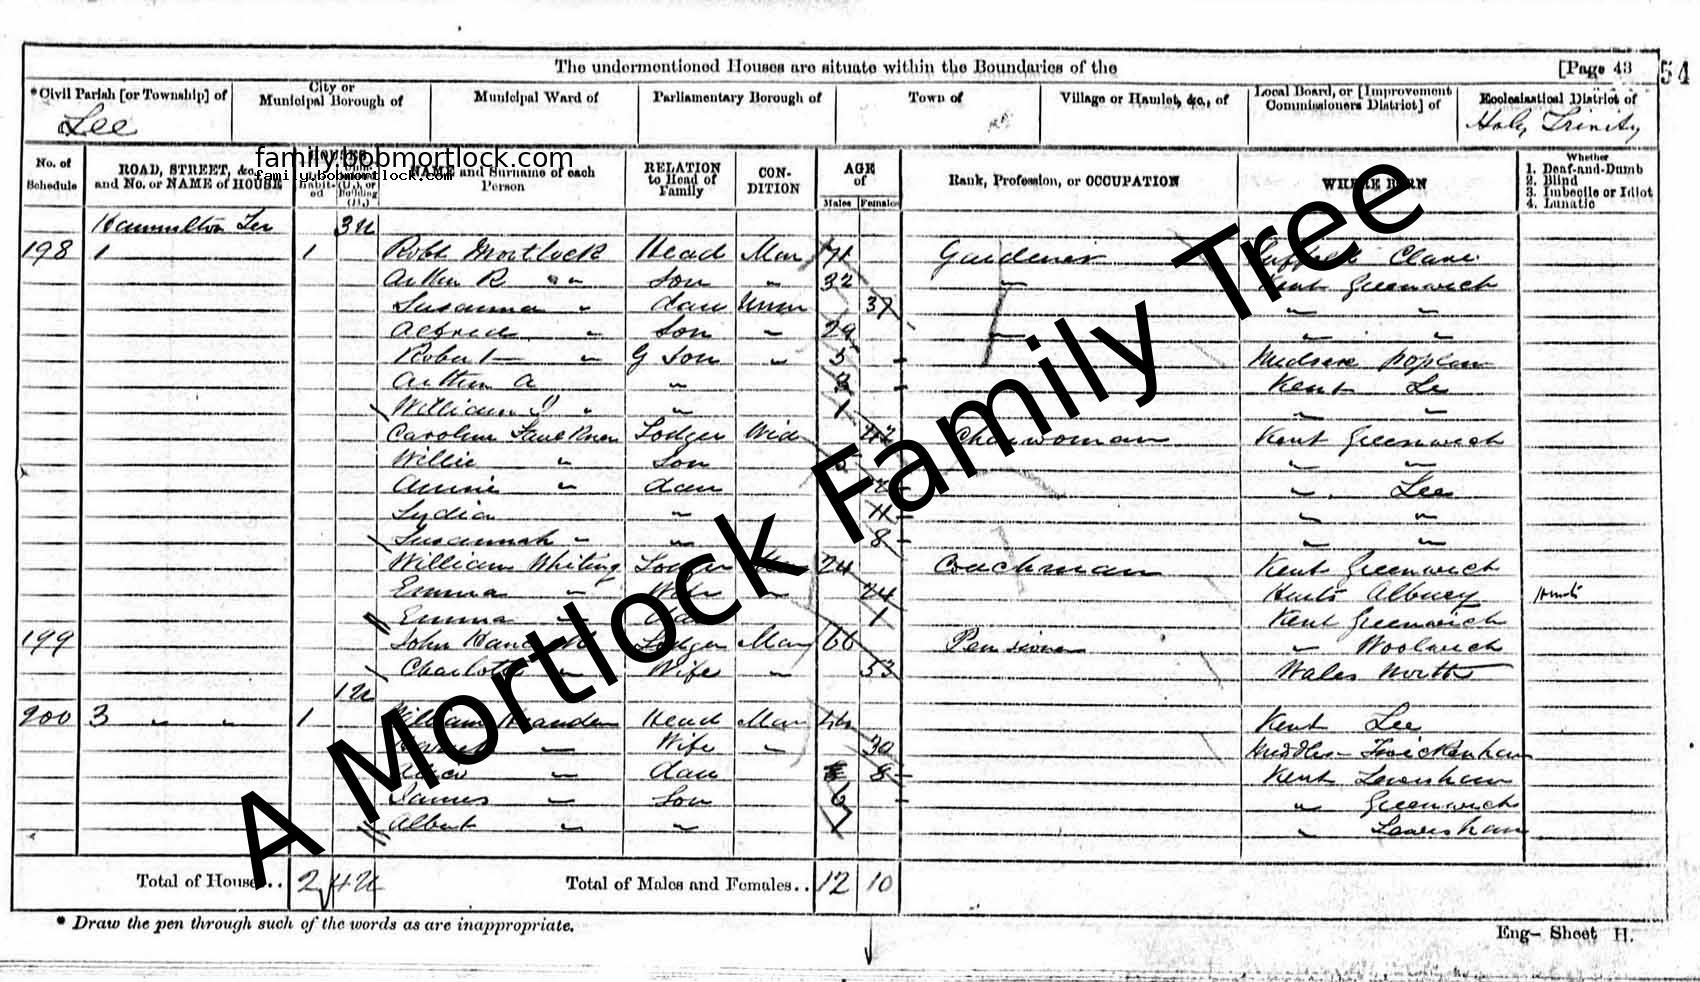 The undermentioned Houses are situate within the Boundaries of the [Page 43 54
*Civil Parish [or Township] of City or Municipal Borough of Municipal Ward of Parliamentary Borough of Town of Village or Hamlet, &c., of Local Board, or [Improvement Commissioners District] of Ecclesiastical District of
Lee Holy Trinity
family.bobmortlock.com
family.bobmortlock.com
No. of Schedule ROAD, STREET, &c., and No. or NAME of HOUSE NAME and Surname of each Person RELATION to Head of Family CON-DITION AGE of Males Females Rank, Profession, or OCCUPATION WHERE BORN Whether 1. Deaf-and-Dumb 2. Blind 3. Imbecile or Idiot 4. Lunatic
Hammilton Ter 3 U
198 1 1 Robt Mortlock Head Mar 71 Gardener Suffolk Clare
Arthur R " " Son " 32 " Kent Greenwich
Susanna " dau Unm 37 " "
Alfred " Son " 29 " " "
Robert " G Son " 5 Midsex Poplar
Arthur A " 3 Kent Lee
William " " 1 " "
Caroline Faulkner Lodger Wid 42 Charwoman Kent Greenwich
Willie " Son " "
Annie " dau " Lee
Lydia " 11 " "
Susannah " " 8 " "
William Whiting Lodger 24 Coachman Kent Greenwich
Emma " Wife " 24 Herts Albury
Emma " 1 Kent Greenwich
199 John Lodger Mar 66 Pensioner " Woolwich
Charlotte " Wife " 53 Wales North
1 U
200 3 " " 1 William Head Mar Kent Lee
" Wife " 30 Middles Twickenham
Alice " dau 8 Kent Lewisham
James " Son 6 " Greenwich
Albert " " " Lewisham
Total of Houses.. 2 4 U Total of Males and Females.. 12 10
* Draw the pen through such of the words as are inappropriate.
Eng- Sheet H.
A Mortlock Family Tree